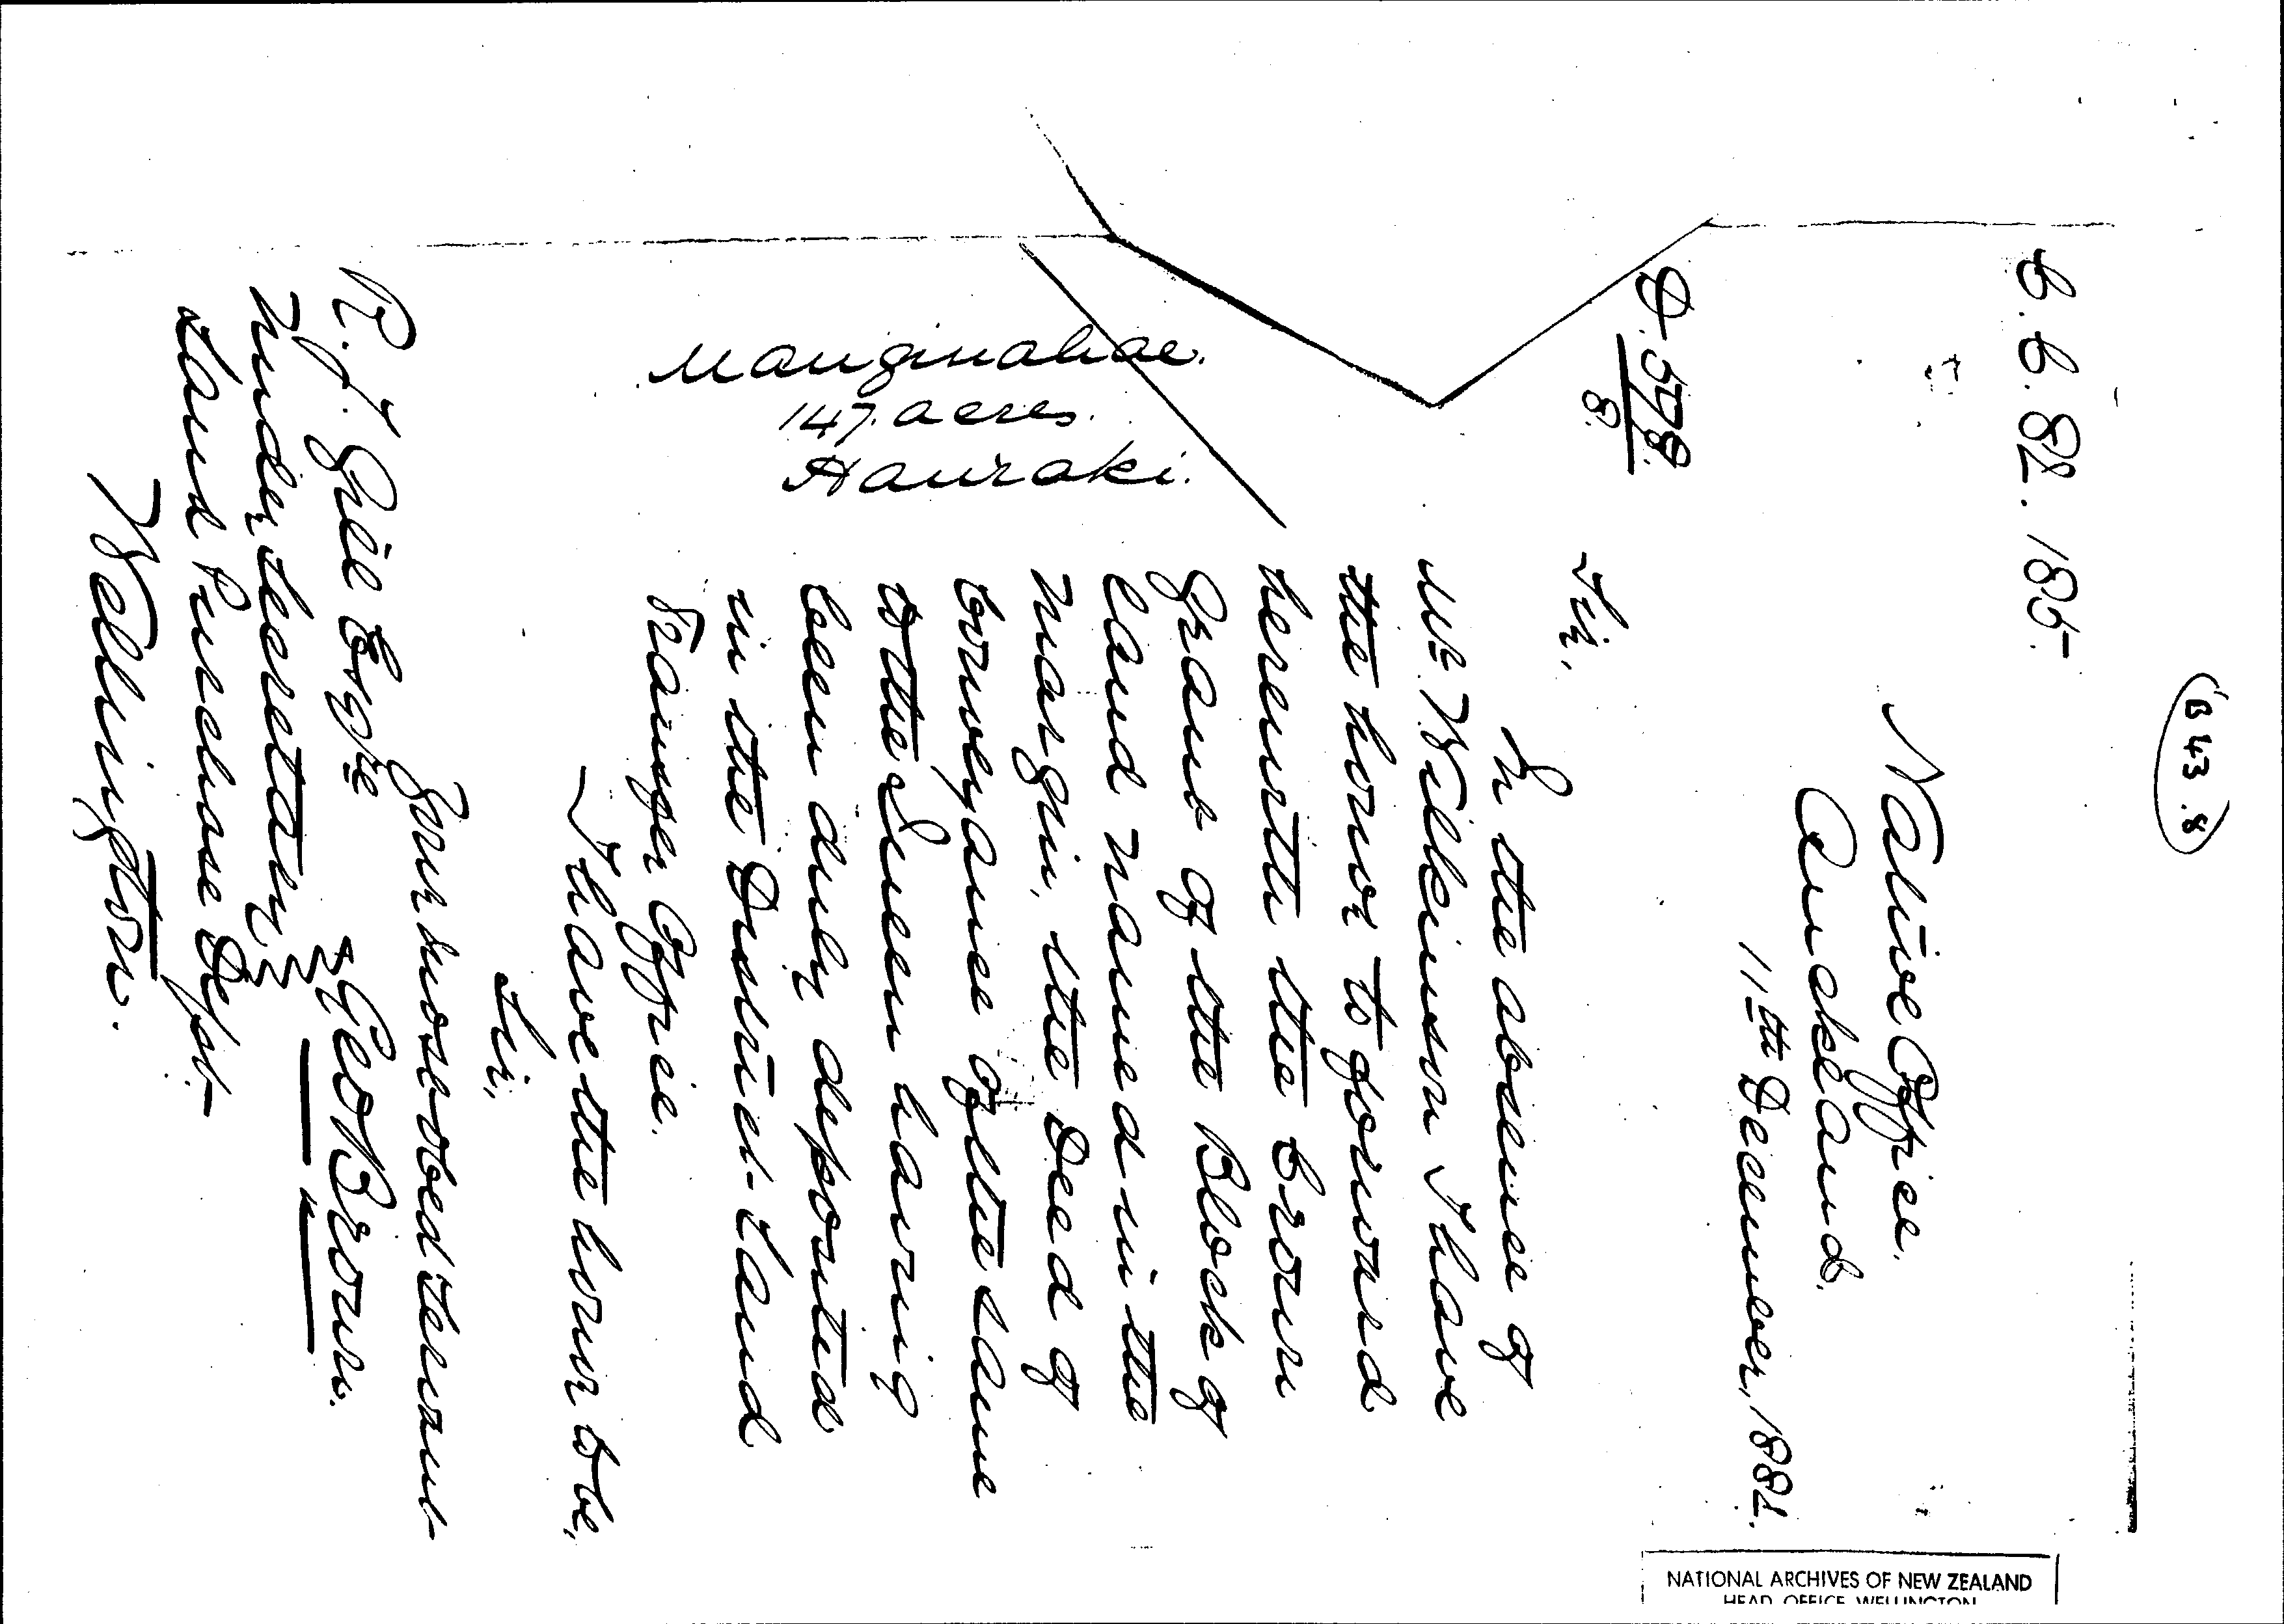 B 43.8
C.C. 82. 185.
Native Office.
Auckland.
11th December, 1882.
D. 578.
8.
Sir,
In the absence of
Mr. Wilkinson I have
the honor to forward
herewith the Crown
Grant of the Block of
land named in the
margin, the Deed of
Conveyance of the same
to the Queen having
been duly deposited
in the District Land
Transfer Office.
Manginahae.
147. acres.
Hauraki.
I have the honor to be,
Sir,
Your most obed servant
Geo Brown.
R. J. Gill Esqre
Under Secretary
Land Purchase Dept.
Wellington.
NATIONAL ARCHIVES OF NEW ZEALAND
HEAD OFFICE WELLINGTON